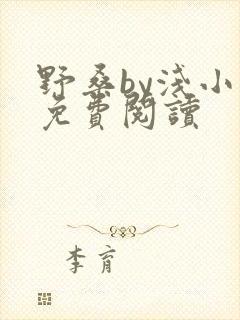 野桑by浅小
免費閱讀
李育